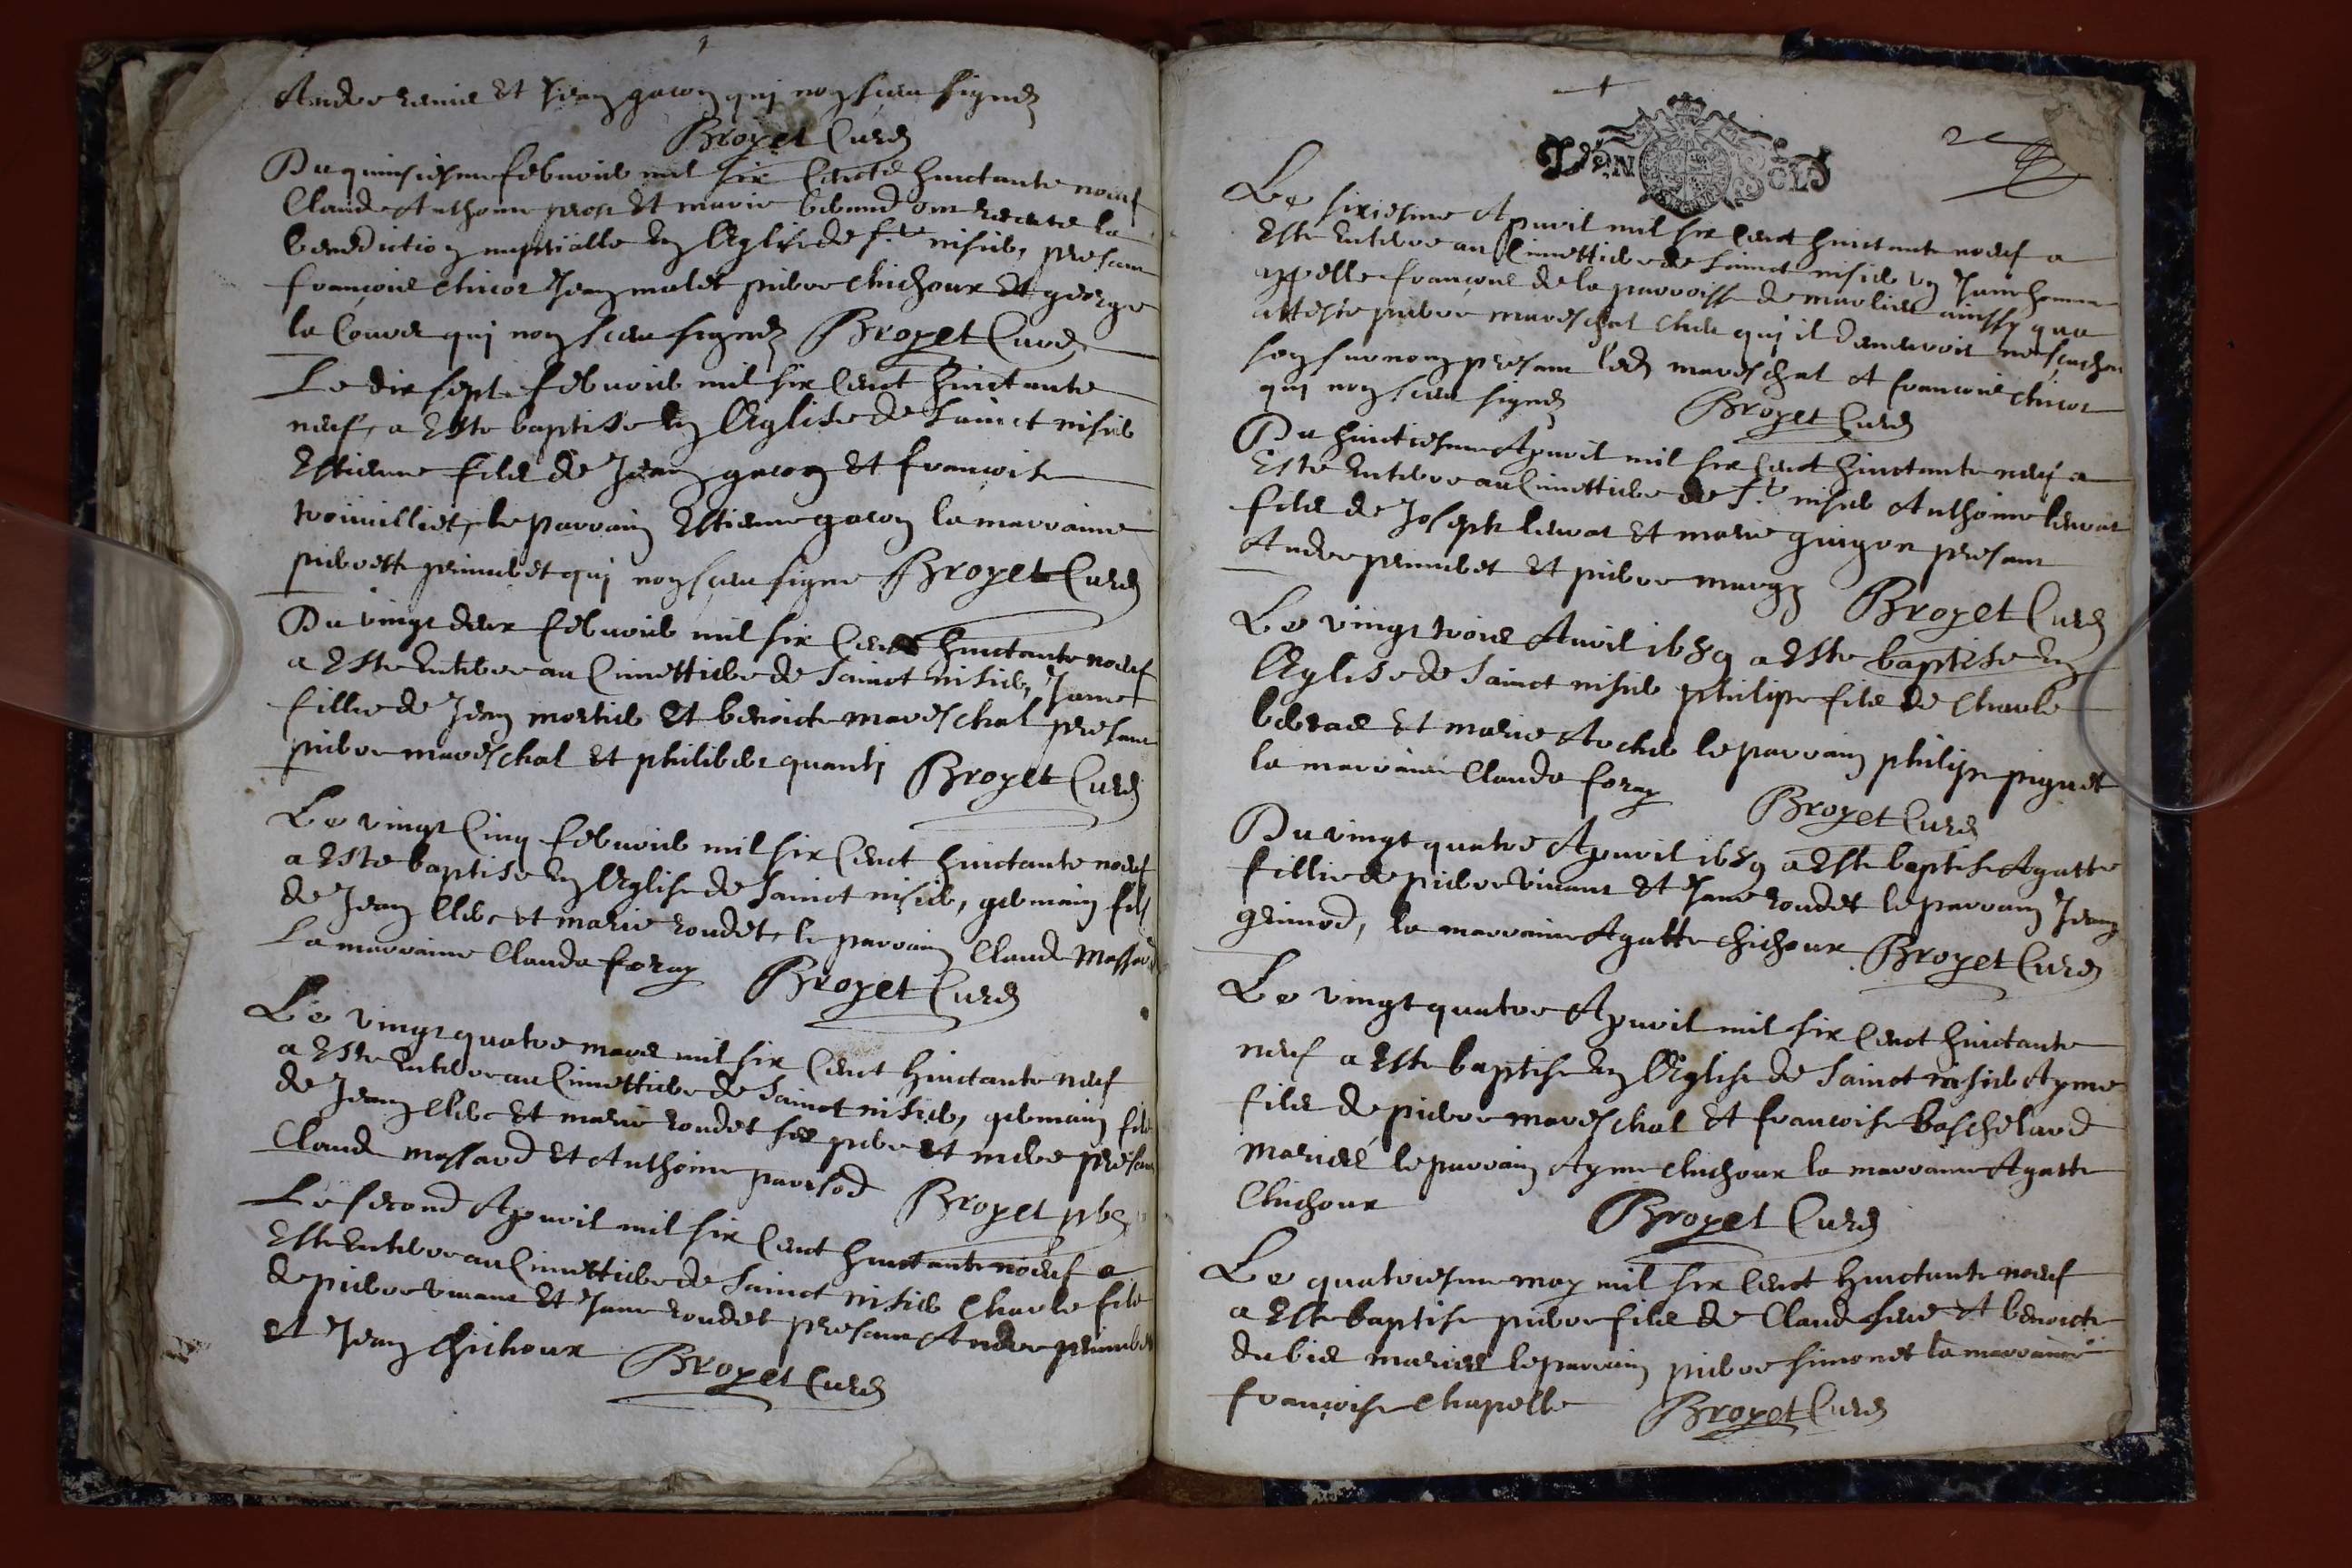 Andre renie et Jean gacon qui nont sceu signer
Broyet Curé
Du quinsiesme febvrier mil six cents huictante neuf
Claude Anthoine prost et marie beband ont receute la
benediction nuptialle en l'Eglise de st nisier, presant
françois chicot Jean molet pierre chichoux et george
la Couve qui nont sceu signer Broyet Curé
Le dix sept febvrier mil six cent huictante
neuf, a este baptisé en l'Eglise de sainct nisier
Estienne filz de Jean gacon et francoise
trouilliet, le parrain Estienne gacon la marraine
pierrette perinubet qui nont sceu signe Broyet Curé
Du vingt deux febvrier mil six cent huictante noeuf
a este enterre au Cimettiere de sainct nisier, Jane
fillie de Jean mortier et benoicte mareschal presant
pierre mareschal et philibert quanti Broyet Curé
Le vingt Cinq febvrier mil six cent huictante noeuf
a este baptisé en l'Eglise de sainct nisier, germain fils
de Jean Clerc et marie roudet, le parrain Claude Massard
La marraine Clauda foray Broyet Curé
Le vingt quatre mars mil six cent huictante neuf
a este enterre au Cimettiere de sainct nisier, germain filz
de Jean Clerc et marie roudet ses pere et mere presant
Claude massard et Anthoine parisod Broyet pbre
Le second Apvril mil six cent huictante noeuf a
Este enterre au Cimettiere de sainct nisier Charle filz
de pierre vivant et Jane roudet presant Andre perinubet
et Jean Chichoux Broyet Curé
2e
DEN SOLS
Le sixiesme Apvril mil six cent huictante noeuf a
Este enterre au Cimettiere de sainct nisier un Jeune homme
appelle françois de la parroisse de marlieu ainssy que
atteste pierre mareschal chez qui il demeuroit ne sachant
son surnom presant led mareschal et françois chicot
qui nont sceu signer Broyet Curé
Du huictiesme Apvril mil six cent huictante neuf a
Este enterre au Cimettiere de st nisier Anthoine levrat
filz de Joseph levrat et marie guigon presant
Andre perinubet et pierre mugy Broyet Curé
Le vingt trois Avril 1689 a este baptisé en
l'Eglise de sainct nisier philipe filz de Charle
bebrad et marie Archer le parrain philipe piguet
la marraine Clauda foray Broyet Curé
Du vingt quatre Apvril 1689 a este baptisé Agatte
fillie de pierre vivant et Jane roudet le parrain Jean
grimod, la marraine Agatte chichoux Broyet Curé
Le vingt quatre Apvril mil six cent huictante
neuf a este baptisé en l'Eglise de sainct nisier Ayme
filz de pierre mareschal et francoise baschelard
mariés le parrain Ayme chichoux la marraine Agatte
Chichoux Broyet Curé
Le quatriesme may mil six cent huictante noeuf
a este baptisé pierre filz de Claude serie et benoicte
dubier mariés le parrain pierre simonet la marraine
françoise Chapelle Broyet Curé